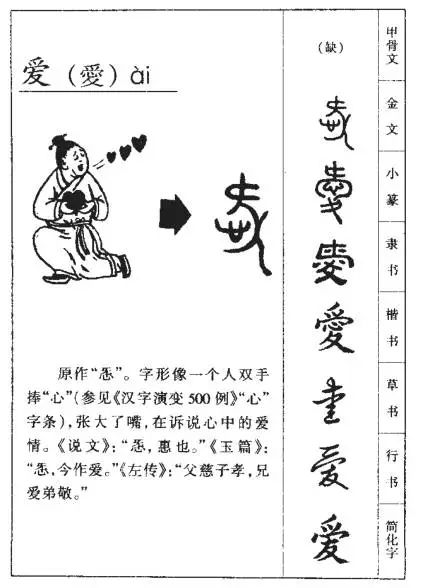 爱（愛）ài
原作“㤅”。字形像一个人双手
捧“心”（参见《汉字演变500例》“心”
字条），张大了嘴，在诉说心中的爱
情。《说文》：“㤅，惠也。”《玉篇》：
“㤅，今作爱。”《左传》：“父慈子孝，兄
爱弟敬。”
（缺）
甲骨文
金文
小篆
愛
隶书
愛
楷书
草书
爱
行书
爱
简化字